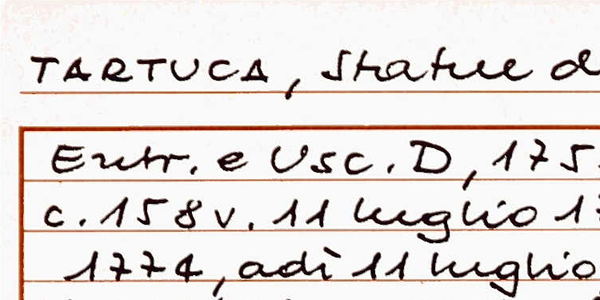 TARTUCA, Statue d
Entr. e Usc. D, 175
c. 158v. 11 luglio 17
1774, adì 11 luglio